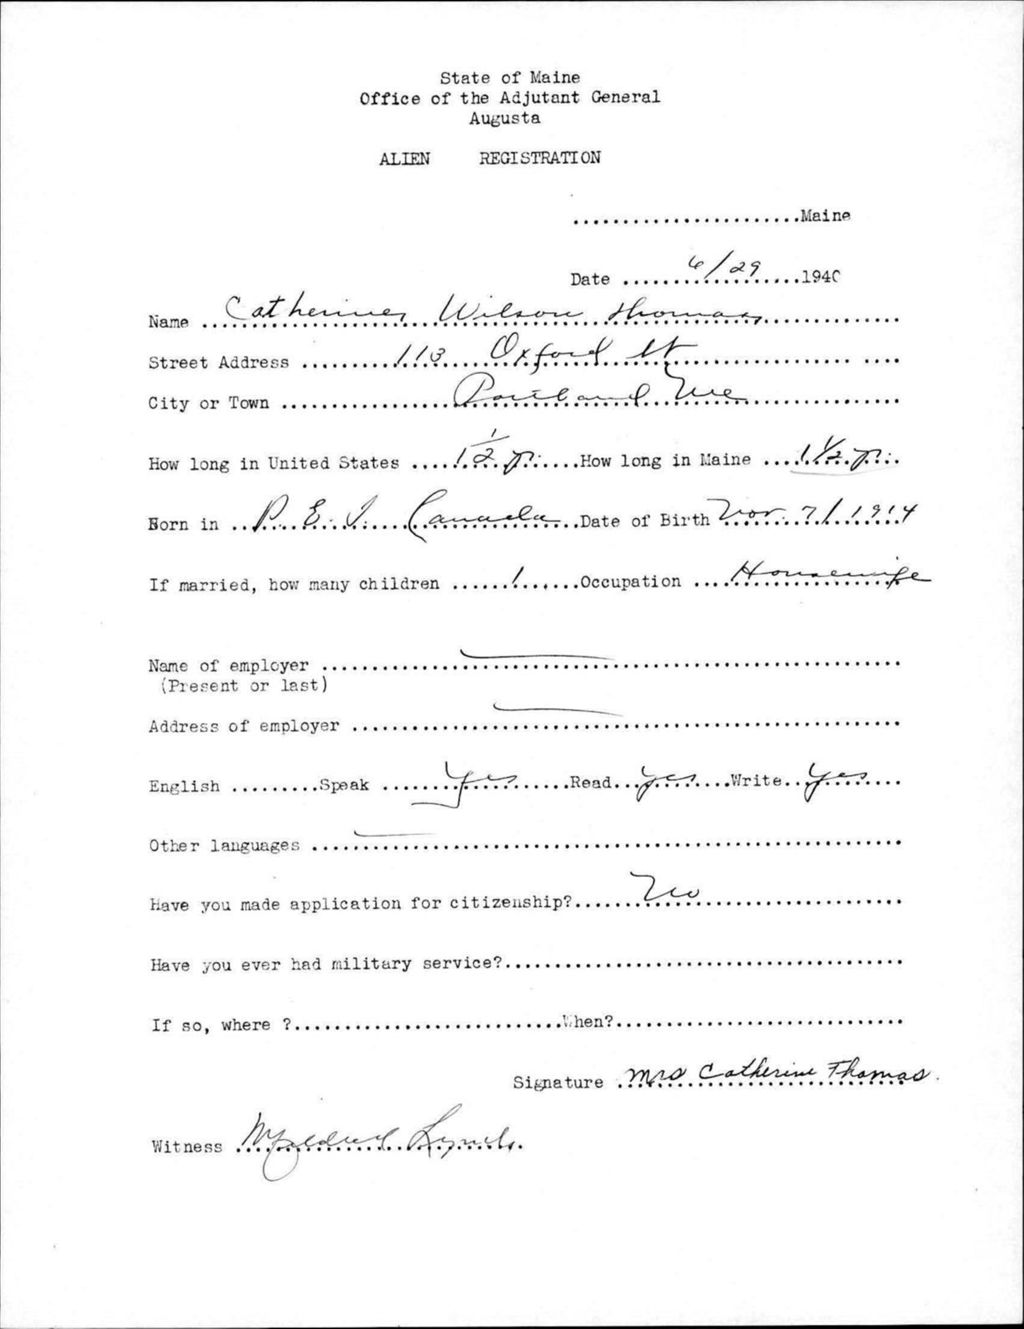 State of Maine
Office of the Adjutant General
Augusta
ALIEN REGISTRATION
.......................Maine
Date .......6/29.......1940
Name ..Catherine Wilson Thomas..............
Street Address ..........113 Oxford St.................... ....
City or Town .................Portland Me...............
How long in United States ....1 1/2 yr.....How long in Maine ...1 1/2 yr...
Born in ..P. E. I. Canada...Date of Birth Nov. 7/1914
If married, how many children ......1......Occupation ....Housewife
Name of employer ..........................................................
(Present or last)
Address of employer .......................................................
English .........Speak .......Yes.......Read...yes....Write..Yes....
Other languages ...........................................................
Have you made application for citizenship?.......No....................
Have you ever had military service?........................................
If so, where ?...........................When?.............................
Signature .Mrs Catherine Thomas.
Witness Mildred Lynch.